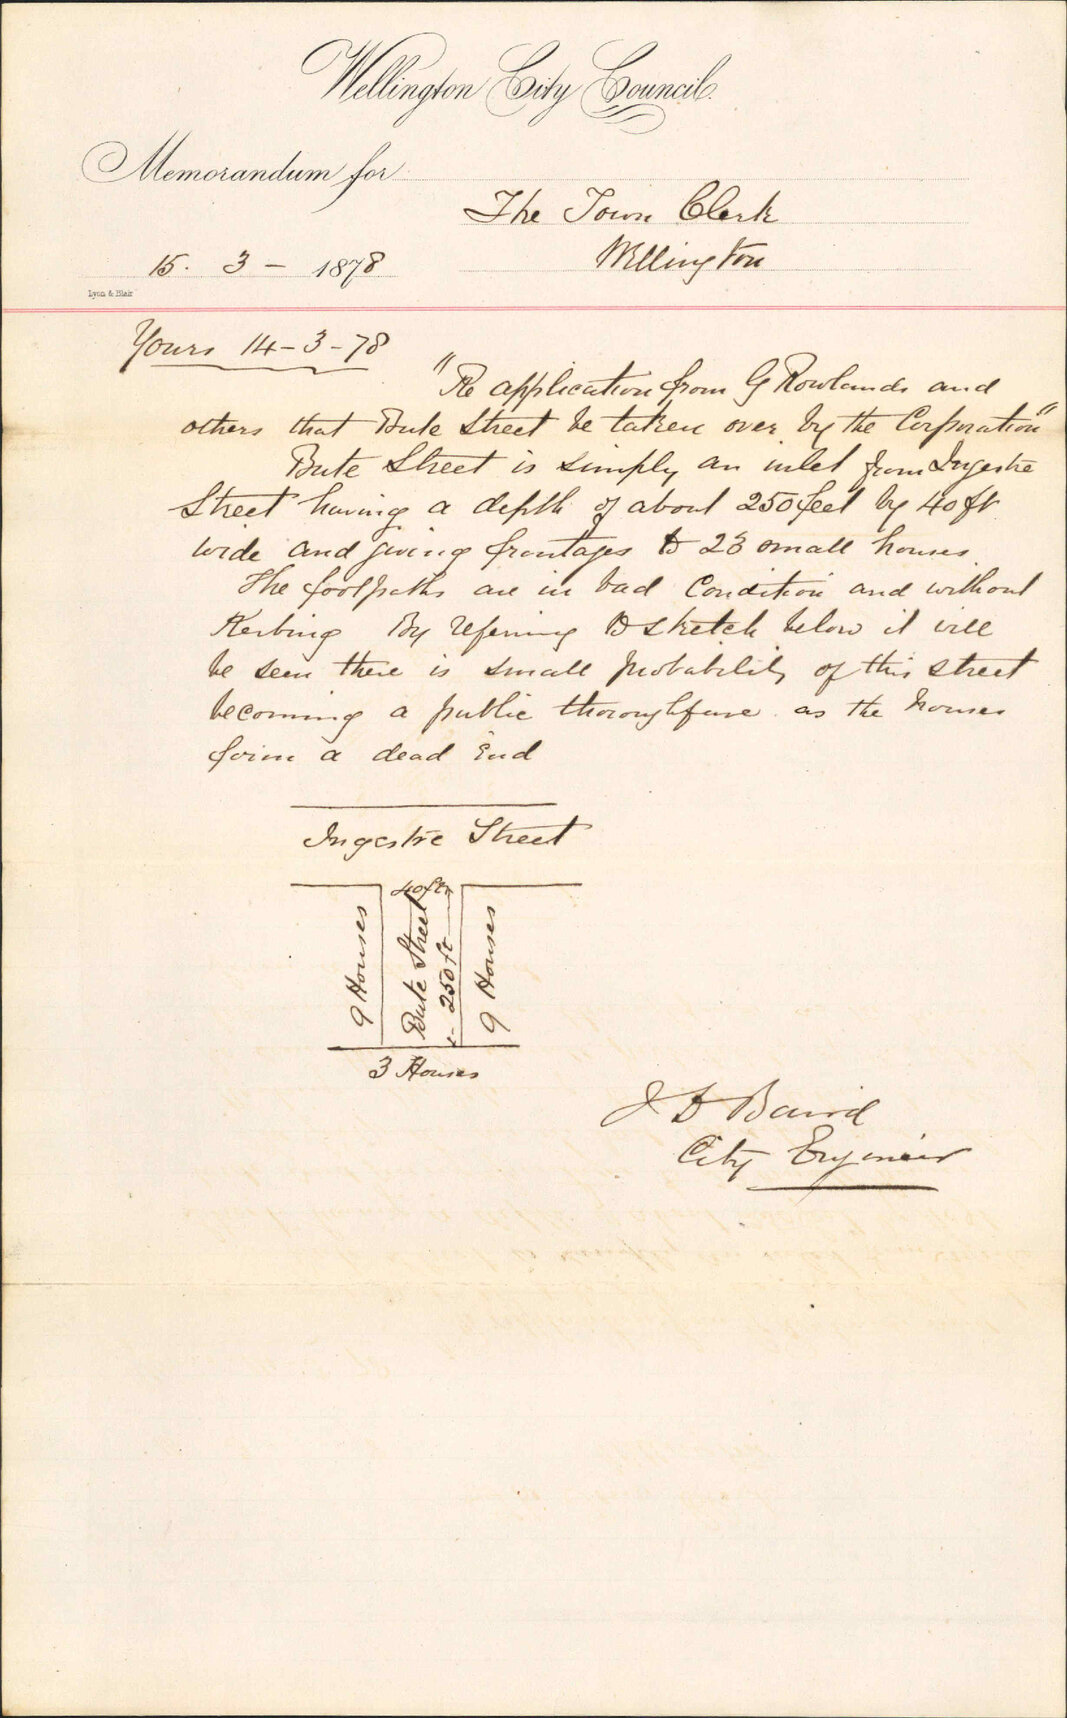 Wellington City Council.
Memorandum for
The Town Clerk
Wellington
15. 3 - 1878
Lyon & Blair
Yours 14-3-78
"Re application from G Rowlands and
others that Bute Street be taken over by the Corporation"
Bute Street is simply an inlet from Ingestre
Street having a depth of about 250 feet by 40 ft
wide and giving frontages to 23 small houses
The footpaths are in bad Condition and without
Kerbing By referring to sketch below it will
be seen there is small probability of this street
becoming a public thoroughfare as the houses
form a dead End
Ingestre Street
40 ft
9 Houses
Bute Street
250 ft
9 Houses
3 Houses
J D Baird
City Engineer